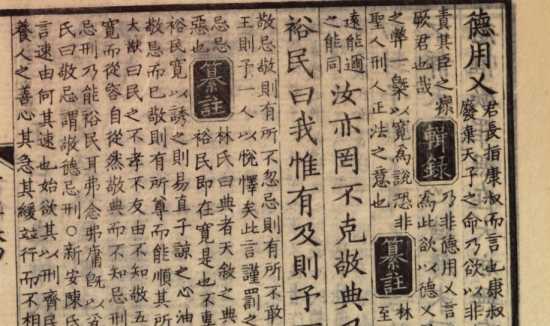 德用乂
君長指康叔而言也康叔
廢棄天子之命乃欲以非
責其臣之瘝
厥君也哉
輯錄
乃非德用乂言
爲此欲以德乂
之弊一槩以寬爲說恐非
聖人刑人正法之意也
纂註
林
至
遠能邇
之能同
汝亦罔不克敬典乃
裕民曰我惟有及則予一
敬忌敬則有所不忽忌則有所不敢
王則予一人以悅懌矣此言謹罰之
忌忌
惡也
纂註
林氏曰典者天敘之典
裕民即在寬是也不專
裕民寬以誘之則易直子諒之心油
敬忌而已敬則有所尊而能順其所
大猷曰民之不孝不友由不知敬五
寬而從容自從然敬典而不知忌刑
忌刑乃能裕民耳弗念弗庸旣以
氏曰敬忌謂敬德忌刑○新安陳氏
言速由何其速也始欲其以刑齊民
養人之善心其急其緩並行而不相